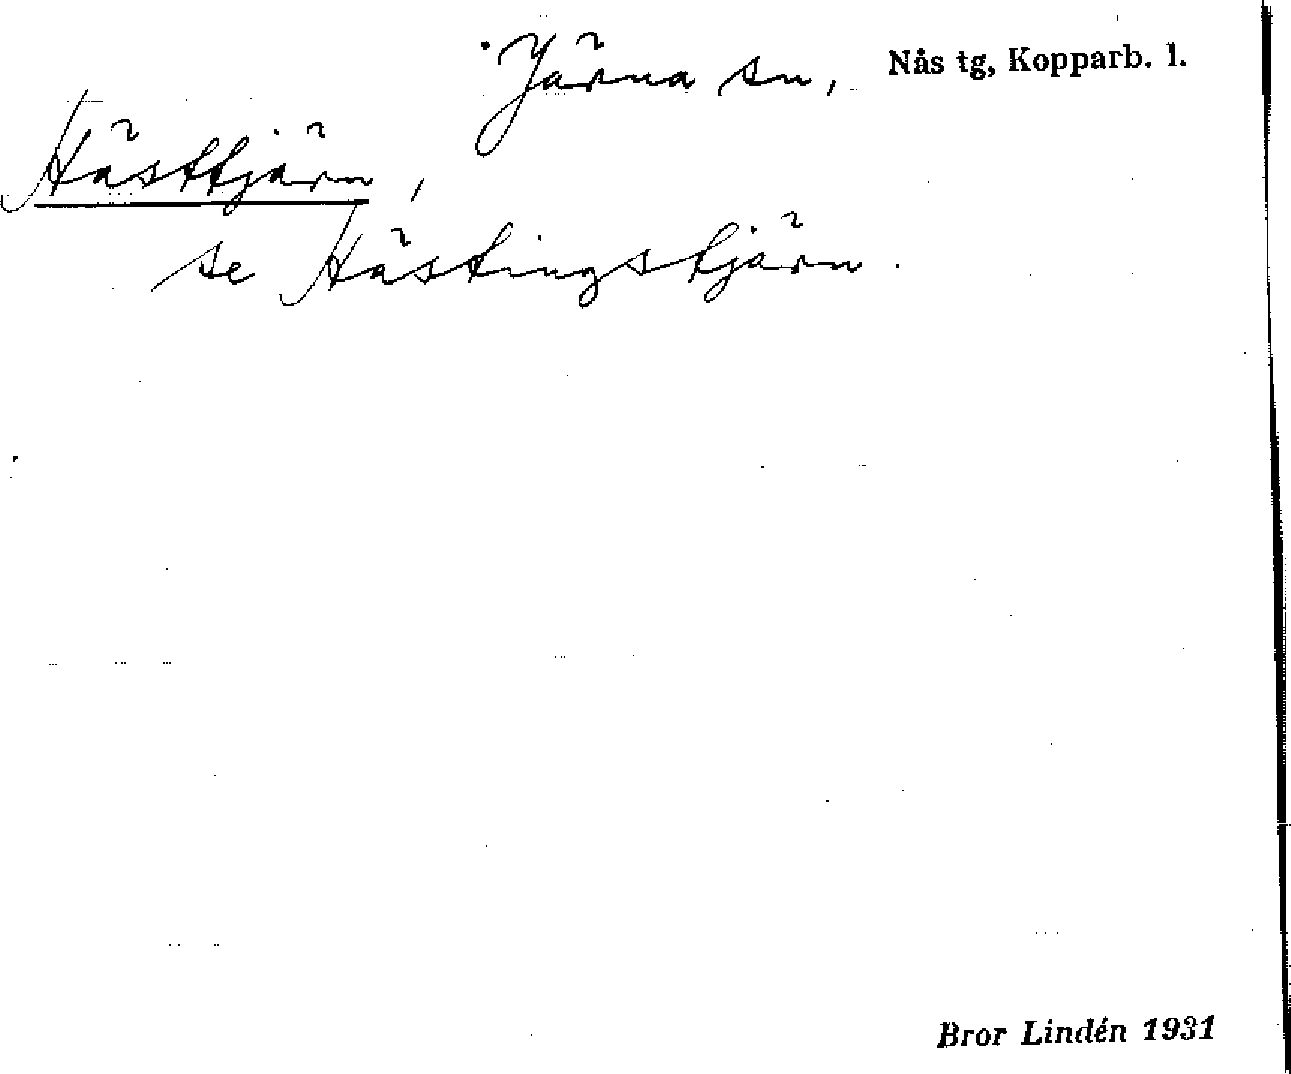 Järna sn, Nås tg, Kopparb. l.
Hästtjärn,
se Hästingstjärn.
Bror Lindén 1931